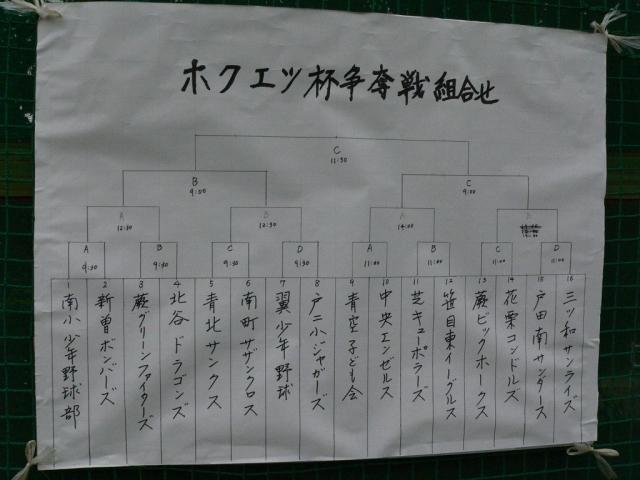 ホクエツ杯争奪戦組合せ
C
11:30
B
9:00
C
9:00
12:30
12:30
14:00
A
9:30
B
9:30
C
9:30
D
9:30
A
11:00
B
11:00
C
11:00
D
11:00
1 南小少年野球部
2 新曽ボンバーズ
3 蕨グリーンファイターズ
4 北谷ドラゴンズ
5 青北サンクス
6 南町サザンクロス
7 翼少年野球
8 戸二小ジャガーズ
9 青空子ども会
10 中央エンゼルス
11 芝キューポラーズ
12 笹目東イーグルス
13 蕨ビックホークス
14 花栗コンドルズ
15 戸田南サンダース
16 三ツ和サンライズ